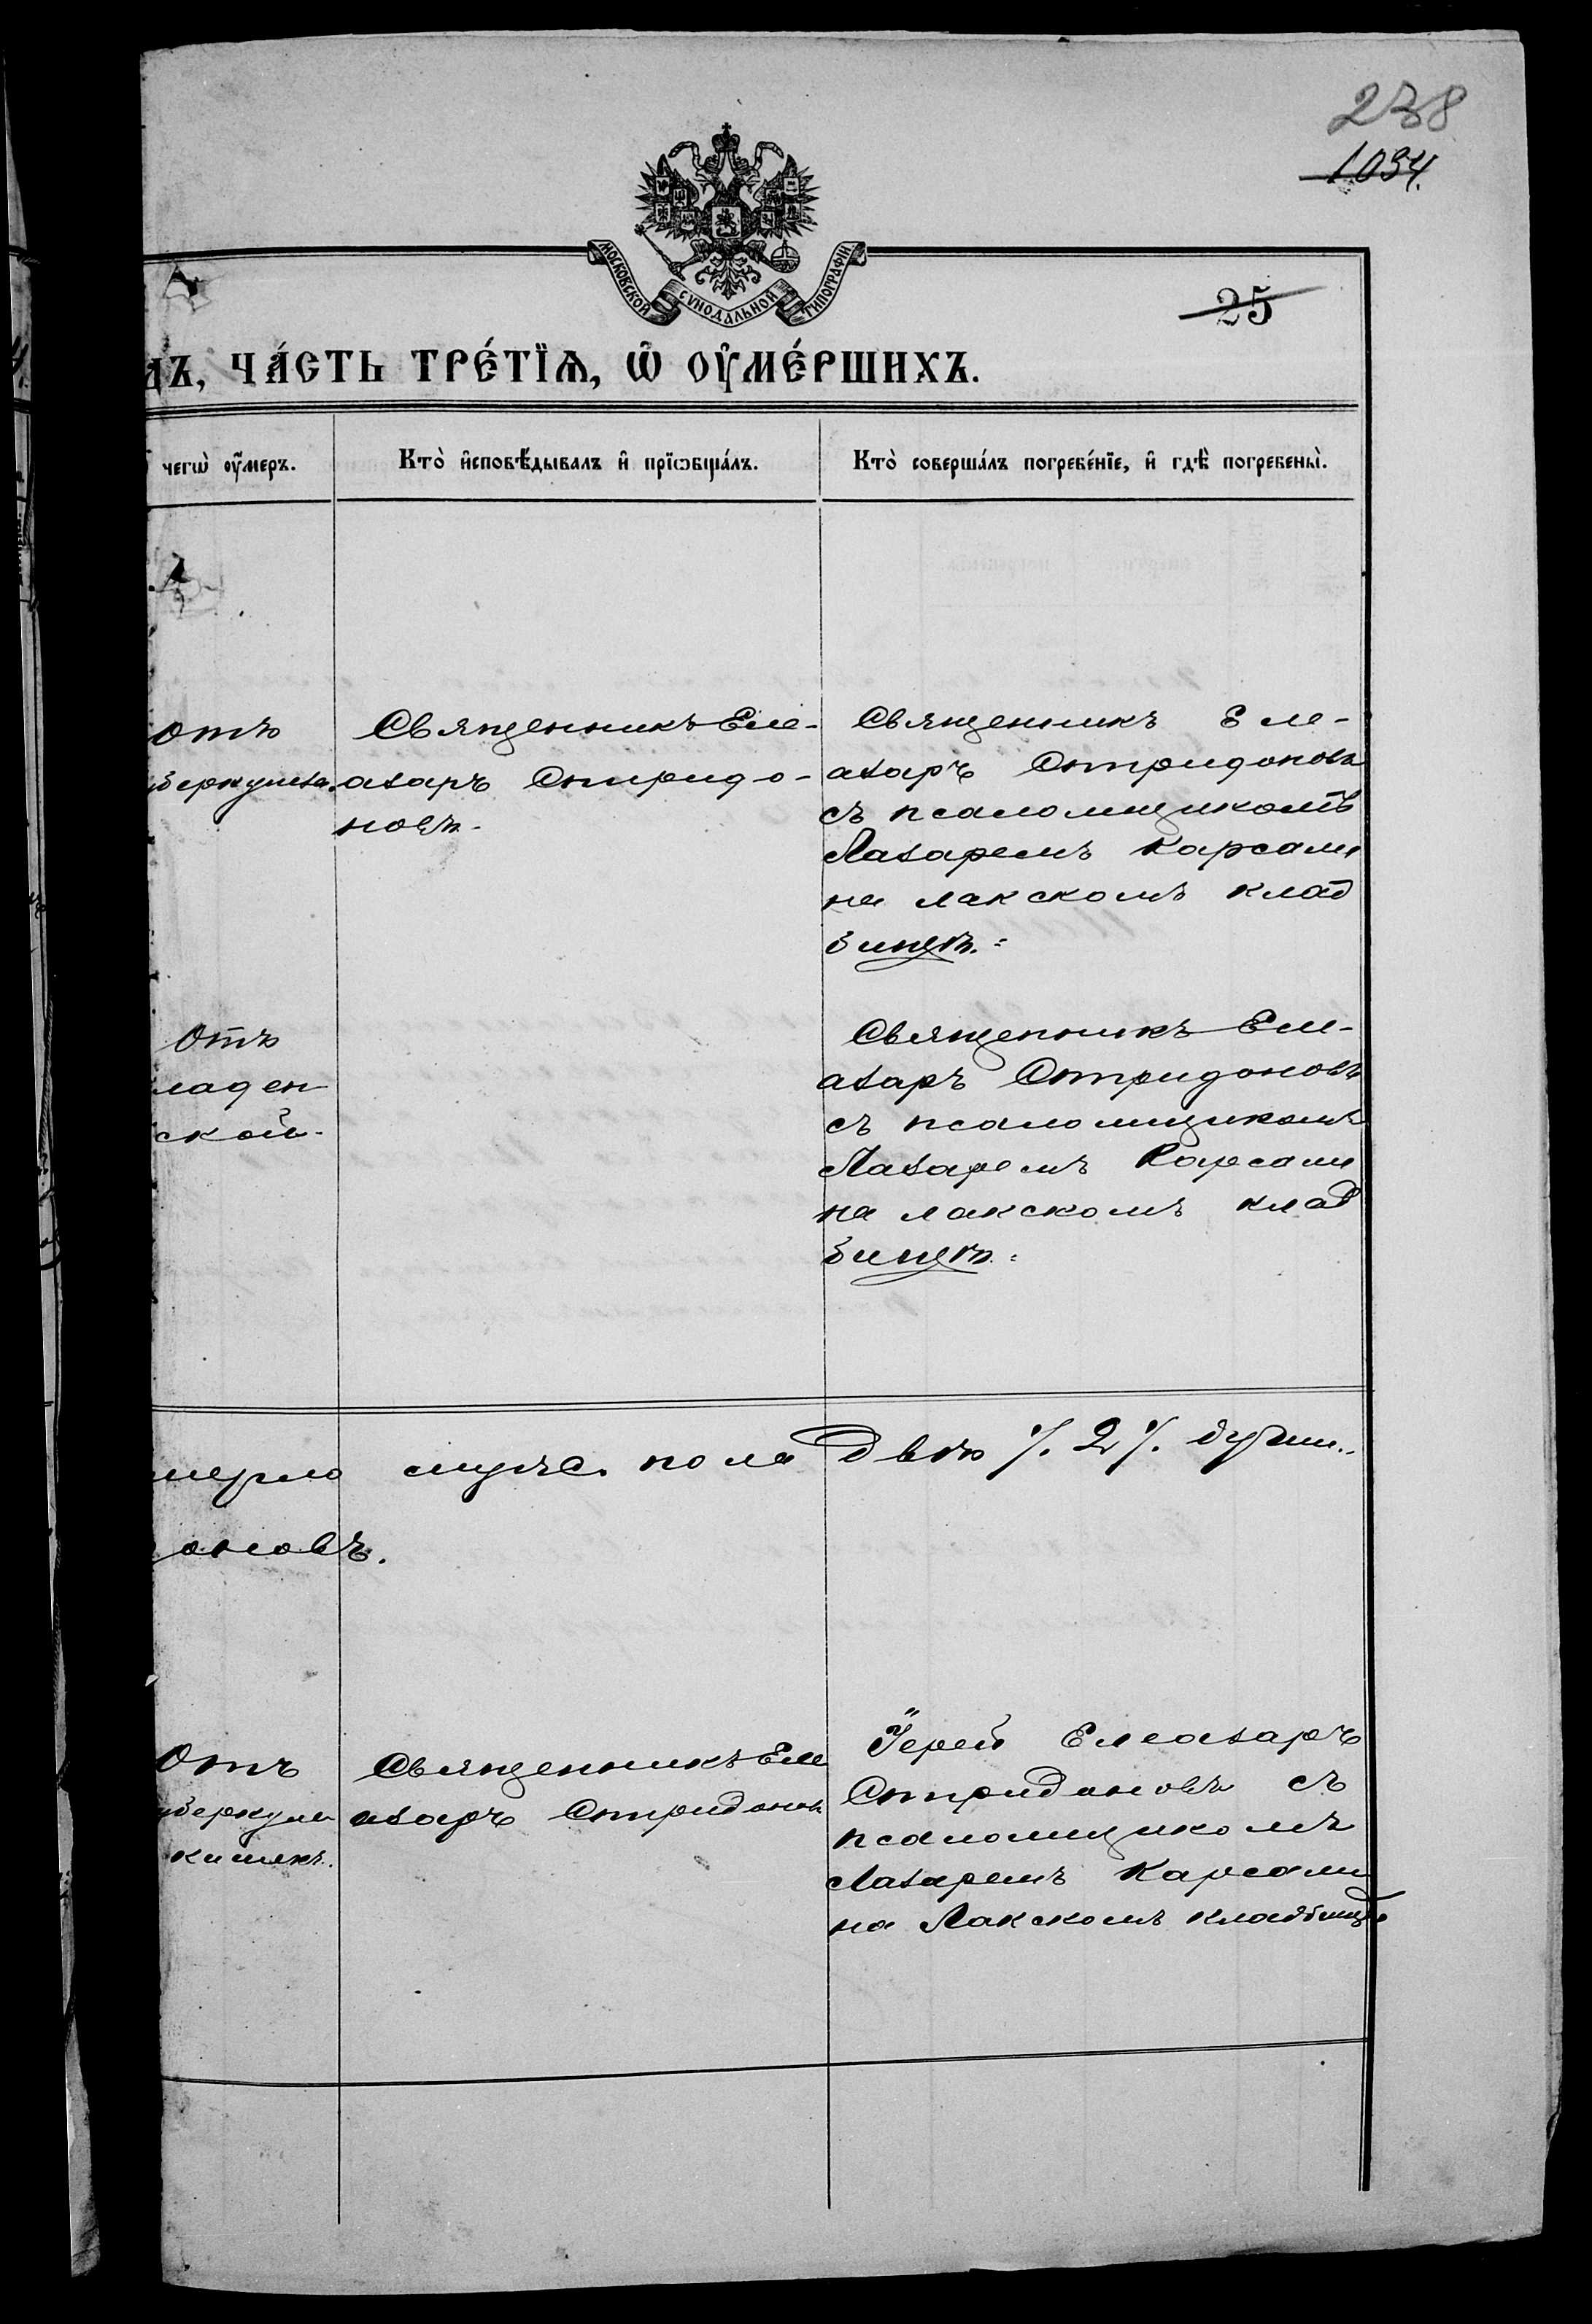 238
1034.
МОСКОВСКОЙ СѴНОДАЛЬНОЙ ТИПОГРАФІИ
25
ДЪ, ЧА́СТЬ ТРЕ́ТЇѦ, Ѡ҆ ОУ҆МЕ́РШИХЪ.
чегѡ̀ оу҆́меръ.
Кто̀ и҆сповѣ́дывалъ и҆ прїѡбща́лъ.
Кто̀ соверша́лъ погребе́нїе, и҆ гдѣ̀ погребены̀.
отъ
беркулеза.
Священникъ Еле-
азаръ Спиридо-
новъ.
Священникъ Еле-
азаръ Спиридоновъ
съ псаломщикомъ
Лазаремъ Карсами
на лакскомъ клад
бищѣ.
Отъ
ладен
ской.
Священникъ Еле-
азаръ Спиридоновъ
съ псаломщикомъ
Лазаремъ Карсами
на лакскомъ клад
бищѣ.
мерло мужс. пола двѣ /. 2 /. души.
оновъ.
Отъ
беркулеза
кишекъ.
Священникъ Еле
азаръ Спиридоновъ
Іерей Елеазаръ
Спиридоновъ съ
псаломщикомъ
Лазаремъ Карсами
на Лакскомъ кладбищѣ